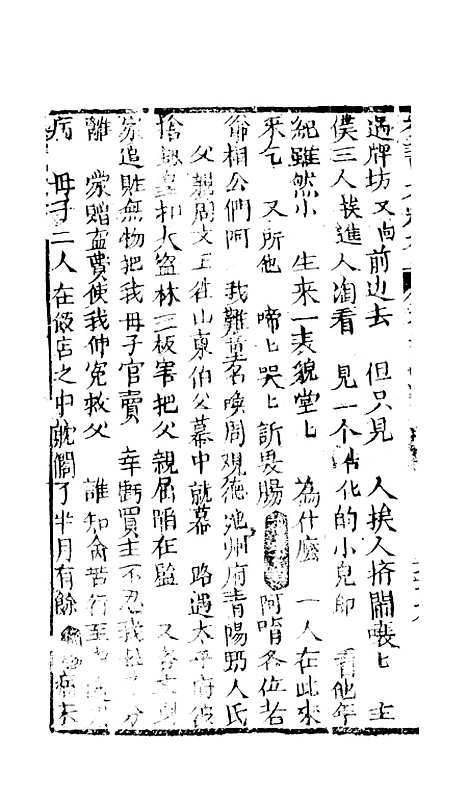 過牌坊又向前边去　但只見　人挨人挤鬧嚷匕　主
僕三人挨進人淘看　見一个　化的小兒郎　看他年
紀雖然小　生來一表貌堂匕　為什麼　一人在此來
來乞　又听他　啼匕哭匕訴衷腸　阿唷各位老
爺相公們阿　我難童名喚周观德池州府青陽縣人氏
父親周文玉往山東伯父幕中就幕　路過太平府被
皇扣大盜林三板害把父親屈陷在監　又
家追賍無物把我母子官賣　幸虧買主不忍我
離　蒙贈盘費使我伸冤救父　誰知命苦行至
病　母子二人在飯店之中躭擱了半月有餘　病未